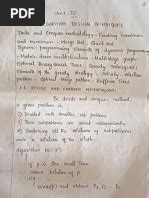 Unit - III
ALGORITHM DESIGN TECHNIQUES
Divide and Conquer methodology - Finding maximum
and minimum - Merge Sort - Quick Sort
Dynamic programming: Elements of dynamic programming
- Matrix-chain multiplication - Multistage graph -
optimal Binary Search Trees. Greedy Technique:
Elements of the greedy strategy - Activity-selection
problem - optimal Merge pattern - Huffman
3.1. DIVIDE AND CONQUER METHODOLOGY:
In divide and conquer method,
a given problem is,
1) Divided into smaller sub problems
2) These sub problems are solved independently.
3) Combining all the solutions of sub problems
into a solution of the whole.
Algorithm DC(P)
{
if P is too small then
return solution of P
else
{
Divide(P) and obtain P1, P2, ... Pn